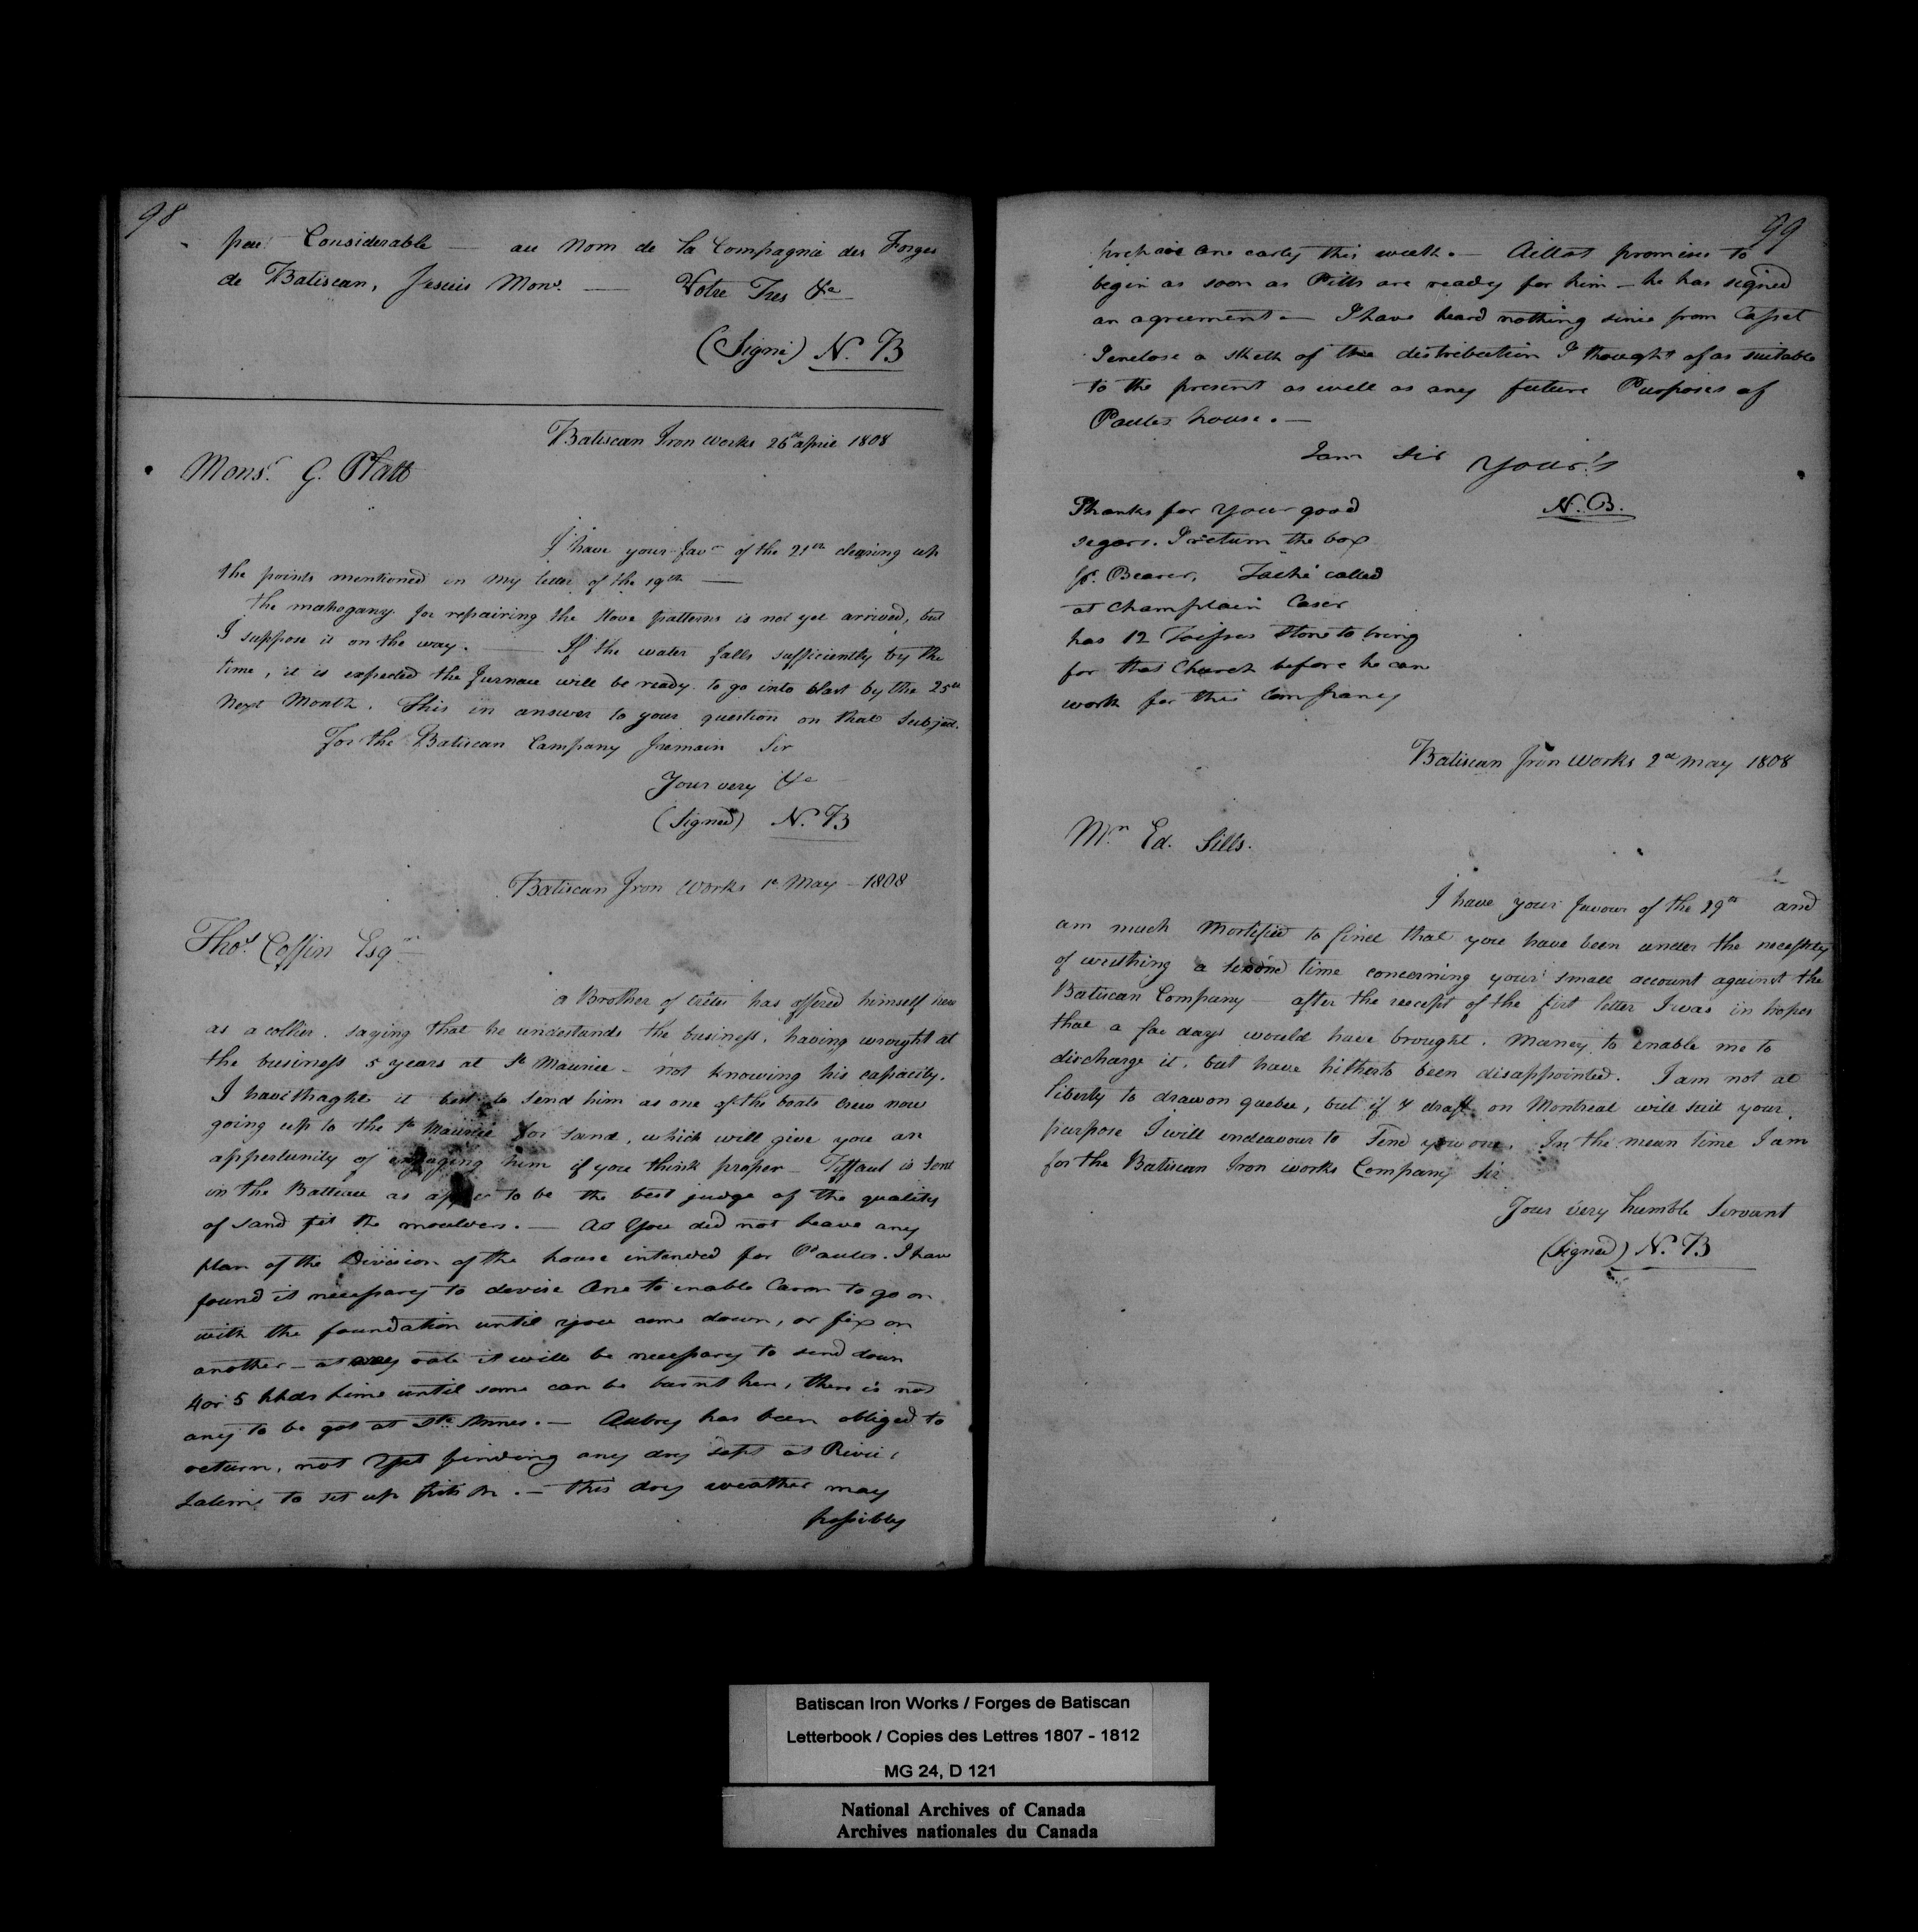 98
peu Considerable — au Nom de la Compagnie des Forges
de Batiscan, Jesuis Monsr. — Votre Tres &c
(Signé) N. B
Batiscan Iron Works 26th april 1808
Monsr. G. Platt
I have your favr of the 21st clearing up
the points mentioned in my letter of the 19th —
the mahogany for repairing the Stove patterns is not yet arrived, but
I suppose it on the way. — If the water falls sufficiently by the
time, it is expected the furnace will be ready to go into blast by the 25th
Next Month. This in answer to your question on that Subject.
For the Batiscan Company Iremain Sir
Your very &c
(Signed) N. B
Batiscan Iron Works 1st May - 1808
Thos. Coffin Esqr
a Brother of has offered himself here
as a collier. saying that he understands the business, having wrought at
the business 5 years at St Maurice - not knowing his capacity.
I have thaght it best to send him as one of the boats Crew now
going up to the St Maurice for sand, which will give you an
appertunity of engaging him if you think proper - Tiffaut is sent
in the Batteau as to be the best judge of the quality
of sand fit the moulders. — As You did not leave any
plan of the Division of the house intended for Paules. I have
found it necessary to devise One to enable Caron to go on
with the foundation until you come down, or fix on
another - at any rate it will be necessary to send down
4 or 5 hhds Lime until some can be burnt here, there is not
any to be got at Ste Annes. — Aubry has been obliged to
return, not Yet finding any dry at
to set up . — this dry weather may
possibly
99
one early this week. — Aillot promises to
begin as soon as Pitts are ready for him - he has signed
an agreement — I have heard nothing since from Casset
I enclose a sketh of the distribution I thought of as suitable
to the present as well as any future Purposes of
Paules house. —
I am Sir Your's
N. B.
Thanks for Your good
segars. I return the box
pr. Bearer, Taché called
at Champlain Caser
has 12 Toisses Stone to bring
for that Church before he can
work for this Company
Batiscan Iron Works 2nd May 1808
Mr. Ed. Sills.
I have your favour of the 29th and
am much Mortified to find that you have been under the necessity
of writhing a second time concerning your small account against the
Batiscan Company - after the receipt of the first letter I was in hopes
that a few days would have brought. Money to enable me to
discharge it. but have hitherto been disappointed. I am not at
liberty to draw on quebec, but if a draft on Montreal will suit your
purpose I will endeavour to Send you one. In the mean time I am
for the Batiscan Iron works Company Sir
Your very humble Servant
(Signed) N. B
Batiscan Iron Works / Forges de Batiscan
Letterbook / Copies des Lettres 1807 - 1812
MG 24, D 121
National Archives of Canada
Archives nationales du Canada